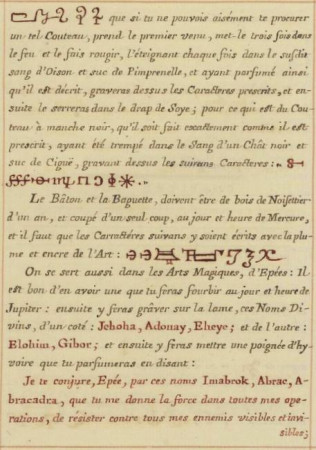 que si tu ne pouvois aisément te procurer
un tel Couteau, prend le premier venu, met-le trois fois dans
le feu et le fais rougir, l'éteignant chaque fois dans le susdit
sang d'Oison et suc de Pimprenelle, et ayant parfumé ainsi
qu'il est décrit, graveras dessus les Caractères prescrits, et en-
suite le serreras dans le drap de Soye; pour ce qui est du Cou-
teau à manche noir, qu'il soit fait exactement comme il est
prescrit, ayant été trempé dans le Sang d'un Chât noir et
suc de Ciguë, gravant dessus les suivans Caracteres:
Le Bâton et la Baguette, doivent être de bois de Noisettier
d'un an, et coupé d'un seul coup, au jour et heure de Mercure,
et il faut que les Carractéres suivans y soient écrits avec la plu-
me et encre de l'Art:
On se sert aussi dans les Arts Magiques, d'Epées: Il
est bon d'en avoir une que tu feras fourbir au jour et heure de
Jupiter: ensuite y feras grâver sur la lame, ces Noms Di-
vins, d'un coté: Jehoha, Adonay, Eheye; et de l'autre:
Elohim, Gibor; et ensuite y feras mettre une poignée d'hy-
voire que tu parfumeras en disant:
Je te conjure, Epée, par ces noms Imabrok, Abrac, A-
bracadra, que tu me donne la force dans toutes mes ope-
rations, de résister contre tous mes ennemis visibles et invi-
sibles;